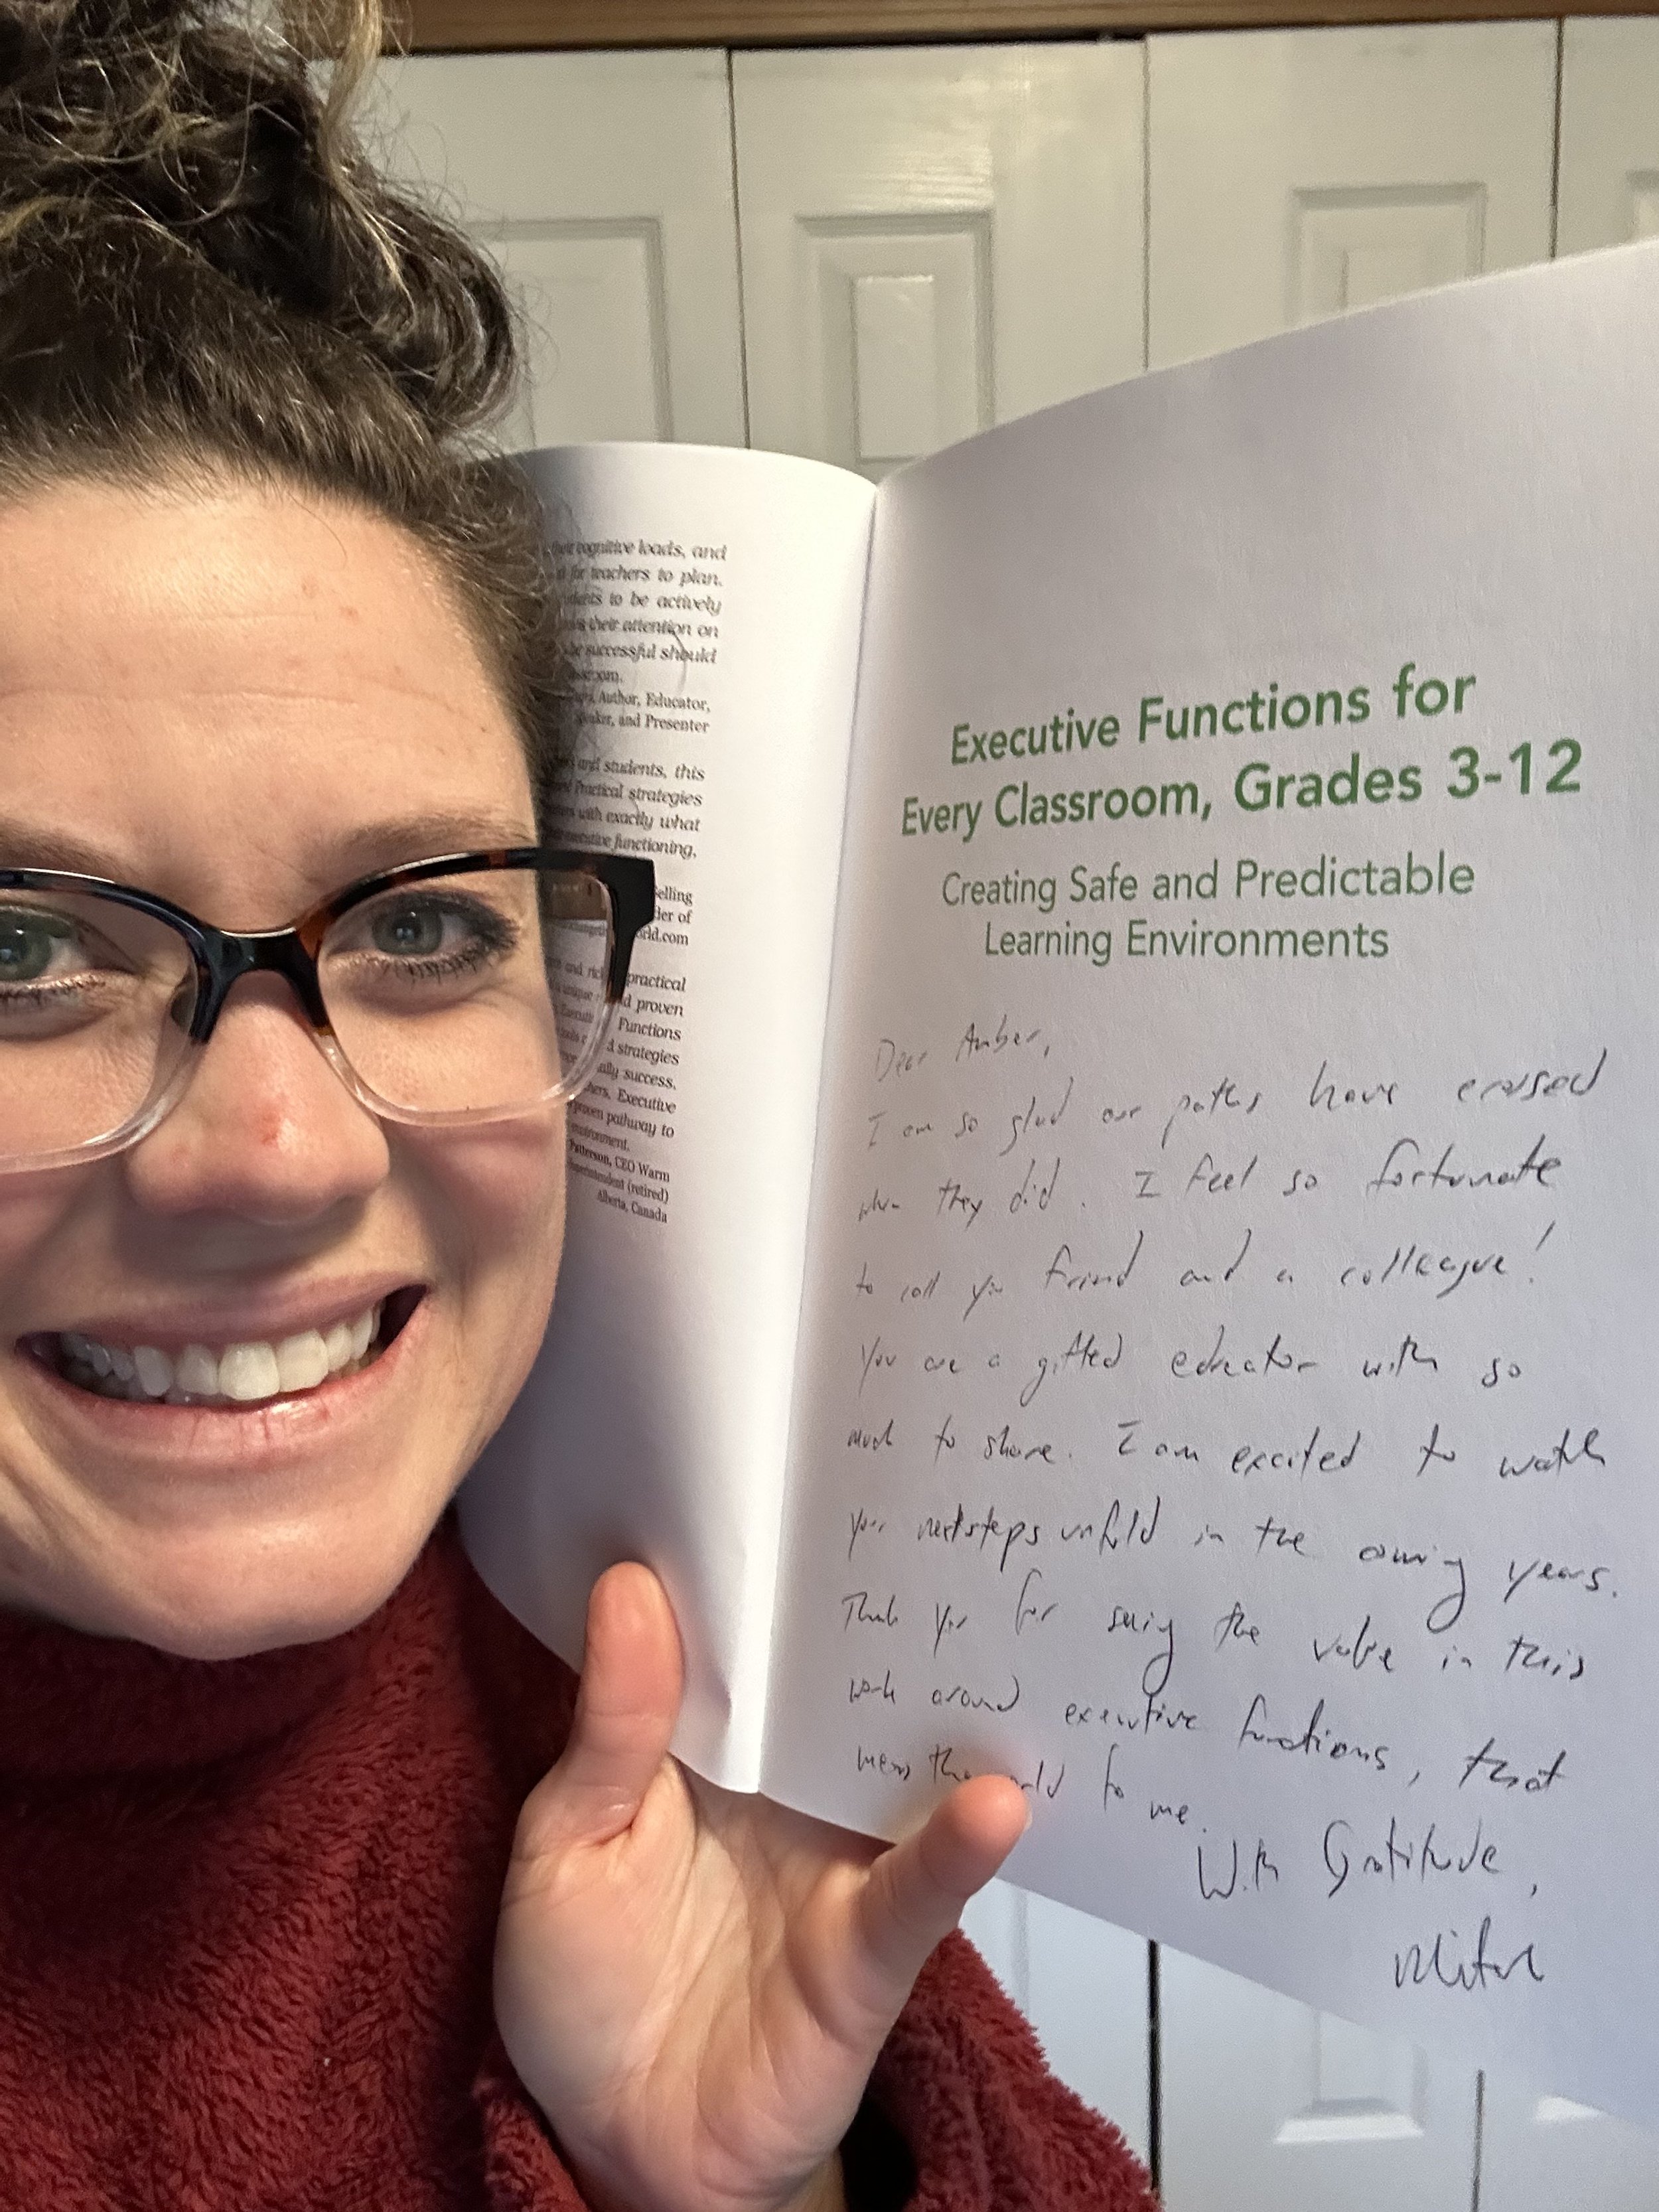 cognitive loads, and
for teachers to plan.
to be actively
their attention on
successful should
Author, Educator,
and Presenter
and students, this
Practical strategies
with exactly what
executive functioning,
der of
and practical
proven
Functions
strategies
success,
Executive
proven pathway to
environment.
Patterson, CEO Warm
(retired)
Alberta, Canada
Executive Functions for
Every Classroom, Grades 3-12
Creating Safe and Predictable
Learning Environments
Dear Amber,
I am so glad our paths have crossed
when they did. I feel so fortunate
to call you friend and a colleague!
You are a gifted educator with so
much to share. I am excited to watch
your next steps unfold in the coming years.
Thank you for seeing the value in this
work around executive functions, that
means the to me.
With Gratitude,